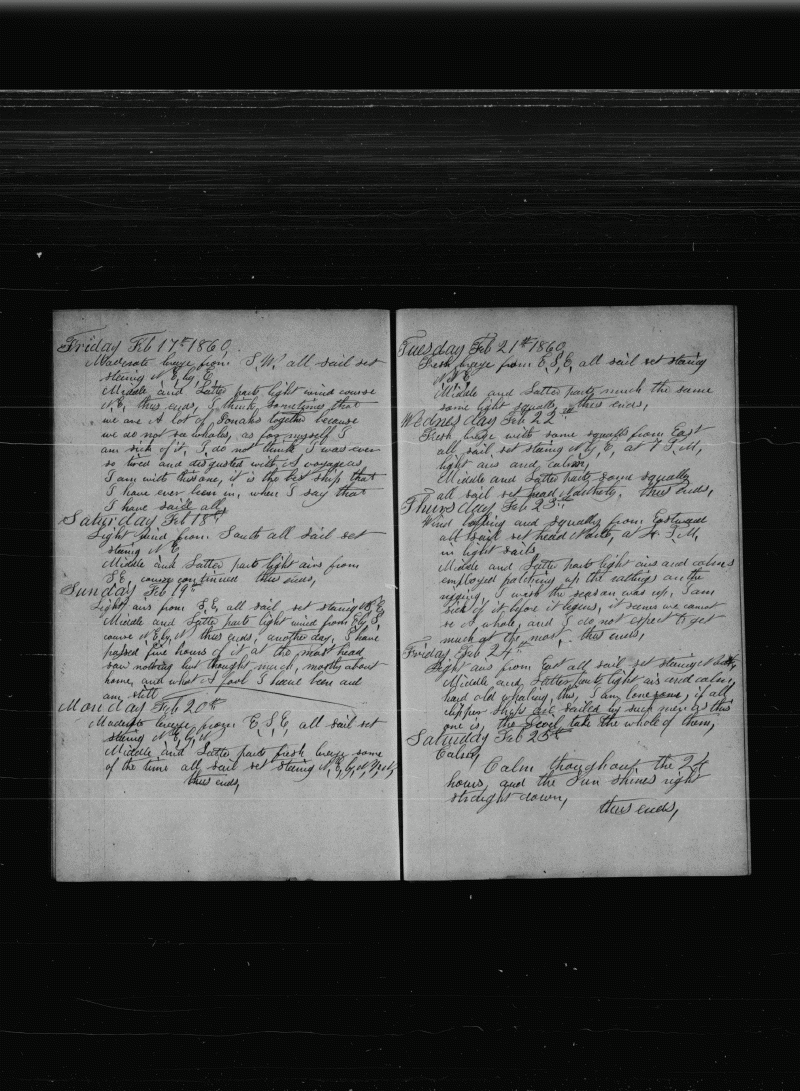 Friday Feb 17th 1860
Moderate breeze from S.W. all sail set
steering N.E. by E.
Middle and Latter parts light wind course
N.E. thus ends, I think sometimes that
we are A lot of Jonahs together because
we do not see whales, as for myself I
am sick of it, I do not think I was ever
so tired and disgusted with A voyage as
I am with this one, it is the best ship that
I have ever been in, when I say that
I have said all,
Saturday Feb 18th
Light wind from South all sail set
steering N.E.
Middle and Latter parts light airs from
S.E. course continued thus ends,
Sunday Feb 19th
Light airs from S.E. all sail set steering N.E.
Middle and Latter parts light wind from E by S,
course N.E. by N thus ends, another day, I have
passed five hours of it at the mast head
saw nothing but thought much, mostly about
home, and what A fool I have been and
am still
Monday Feb 20th
Moderate breeze from E.S.E, all sail set
steering N.E. by N
Middle and Latter parts fresh breeze some
of the time all sail set steering N.E. by N
thus ends,
Tuesday Feb 21st 1860
Fresh breeze from E.S.E, all sail set steering
N.N.E.
Middle and Latter parts much the same
some light squalls, thus ends,
Wednesday Feb 22nd
Fresh breeze with some squalls from East
all sail set steering N by E, at P.M,
light airs and calms,
Middle and Latter parts some squally
all sail set head Northerly, thus ends,
Thursday Feb 23rd
Wind baffling and squally from Eastward
all sail set head North, at 4 P.M,
in light sails
Middle and Latter parts light airs and calms
employed patching up the ratlings on the
rigging, I wish the season was up, I am
sick of it before it begins, it seems we cannot
see A whale, and I do not expect to get
much at the most, thus ends,
Friday Feb 24th
Light airs from East all sail set steering North,
Middle and Latter parts light airs and calm,
hard old whaling, this, I am lonesome, if all
clipper ships are sailed by such men as this
one is, the Devil take the whole of them,
Saturday Feb 25th
Calm,
Calm throughout the 24
hours, and the Sun shines right
straight down,
thus ends,